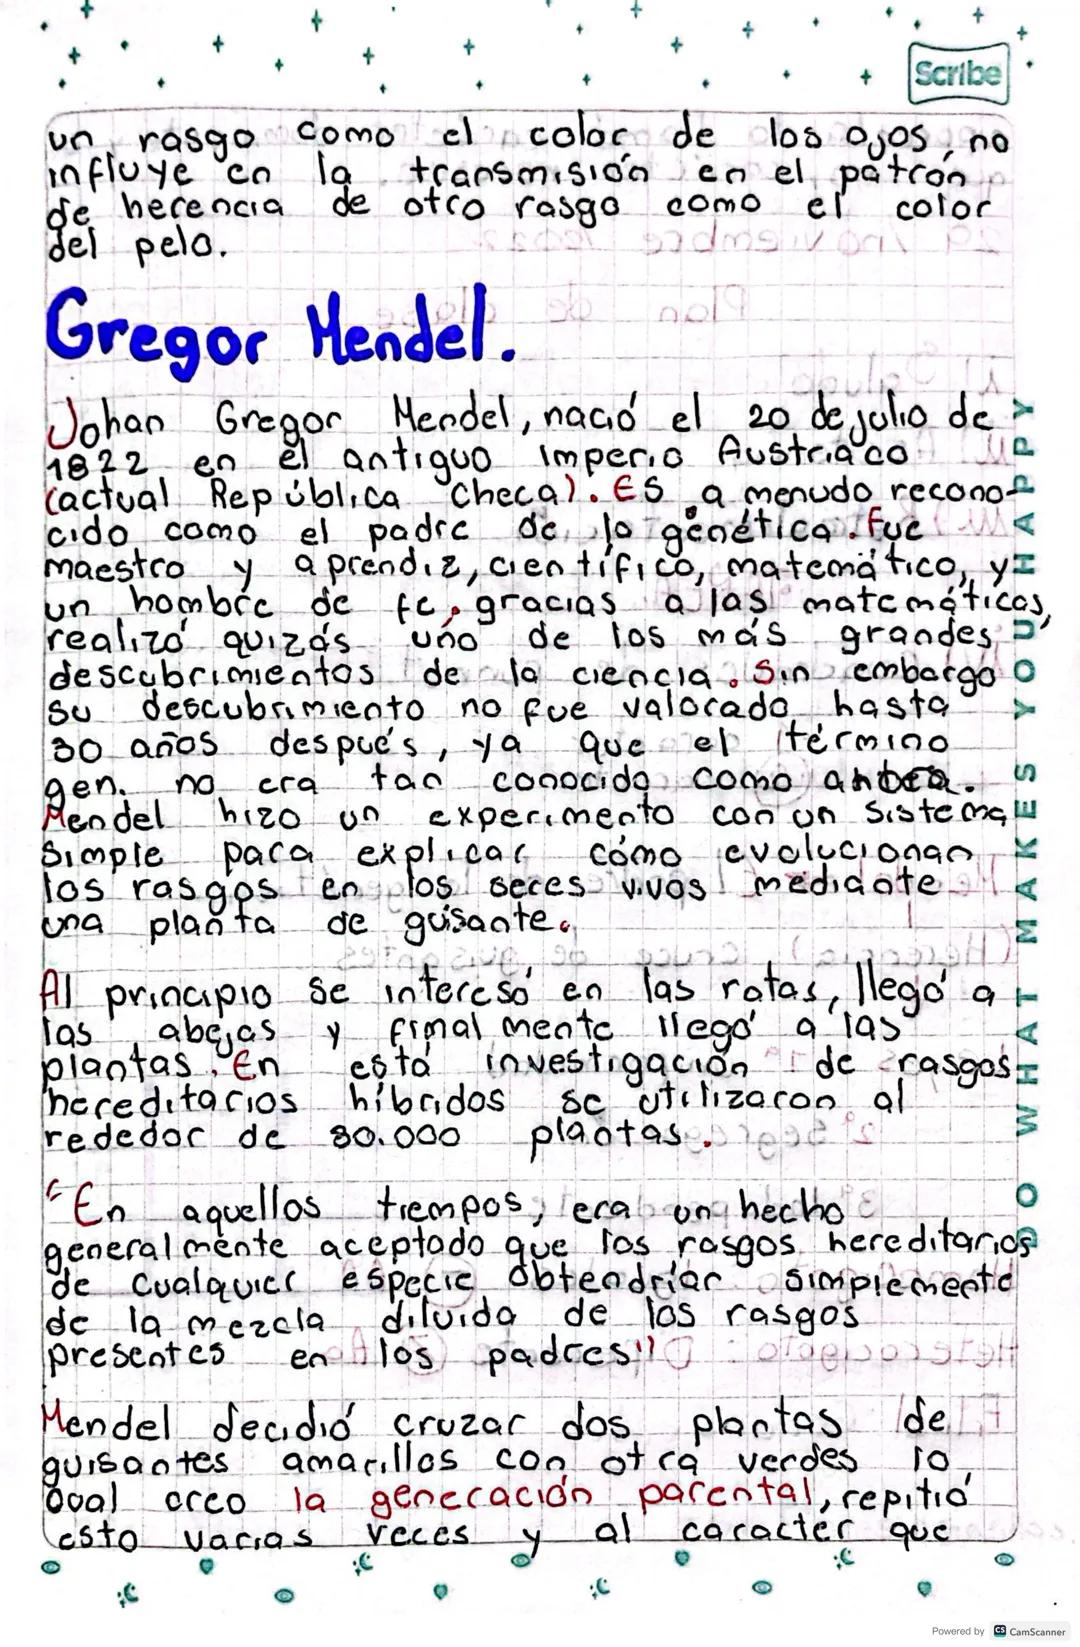 Scribe
un rasgo como el color de los ojos, no
influye en la transmisión en el patrón
de herencia de otro rasgo como el color
del pelo.
Gregor Mendel.
Johan Gregor Mendel, nació el 20 de julio de
1822 en el antiguo Imperio Austriaco
(actual República Checa). Es a menudo recono-
cido como el padre de la genética. Fue
maestro y aprendiz, científico, matemático, y
un hombre de fe, gracias a las matemáticas,
realizó quizás uno de los más grandes
descubrimientos de la ciencia. Sin embargo
su descubrimiento no fue valorado hasta
30 años después, ya que el término
gen. no era tan conocido como
Mendel hizo un experimento con un sistema
simple para explicar cómo evolucionan
los rasgos en los seres vivos mediante
una planta de guisante.
Al principio se interesó en las ratas, llegó a
las abejas y finalmente llegó a las
plantas. En está investigación de rasgos
hereditarios híbridos se utilizaron al
rededor de 30.000 plantas.
"En aquellos tiempos, era un hecho
generalmente aceptado que los rasgos hereditarios
de cualquier especie obtendrían simplemente
de la mezcla diluida de los rasgos
presentes en los padres"
Mendel decidió cruzar dos plantas de
guisantes amarillos con otra verdes lo
cual creo la generación parental, repitió
esto varias veces y al caracter que
DO WHAT MAKES YOU HAPPY
Powered by CS CamScanner